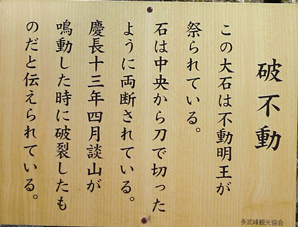 破不動
この大石は不動明王が
祭られている。
石は中央から刀で切った
ように両断されている。
慶長十三年四月談山が
鳴動した時に破裂したも
のだと伝えられている。
多武峰観光協会